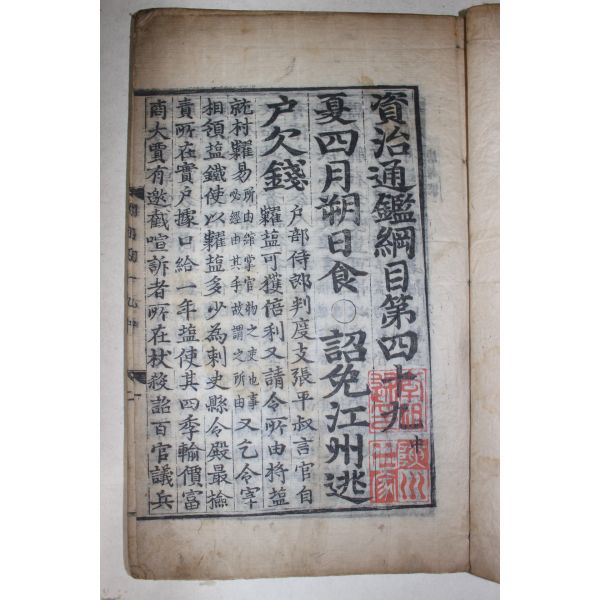 資治通鑑綱目第四十九中
夏四月朔日食○詔免江州逃
户欠錢
户部侍郎判度支張平叔言官自
糶塩可獲倍利又請令所由將塩
就村糶易
所由綰掌官物之吏也事
必經由其手故謂之所由
又乞令宰
相領塩鐵使以糶塩多少為刺史縣令殿最撿
責所在實户據口給一年塩使其四季輸價富
商大賈有邀截喧訴者所在杖殺詔百官議兵